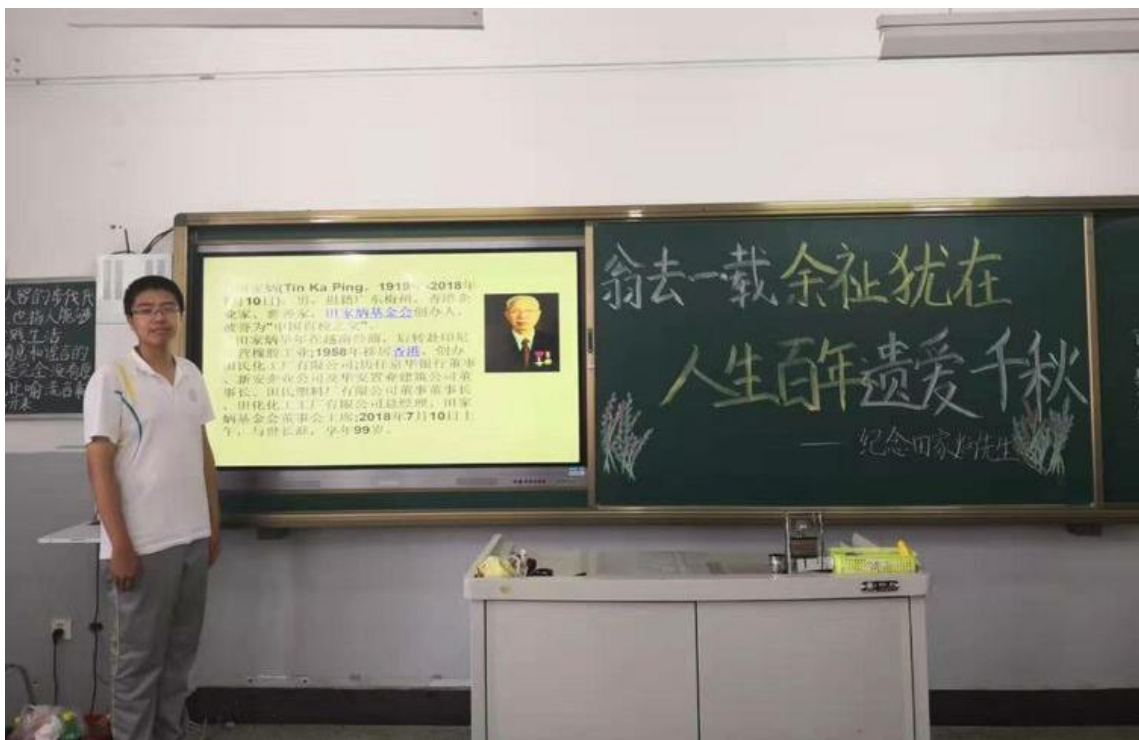 人容们
也指人能够
田家炳(Tin Ka Ping，1919-2018年
7月10日)，男，祖籍广东梅州，香港企
业家、慈善家，田家炳基金会创办人，
被誉为“中国百校之父”。
田家炳早年在越南经商，后转赴印尼
营橡胶工业;1958年移居香港，创办
田氏化工厂有限公司;历任京华银行董事
、新安企业公司及华安置业建筑公司董
事长、田氏塑料厂有限公司董事董事长
、田化化工工厂有限公司总经理、田家
炳基金会董事会主席;2018年7月10日上
午，与世长辞，享年99岁。
翁去一载余祉犹在
人生百年遗爱千秋
——纪念田家炳先生